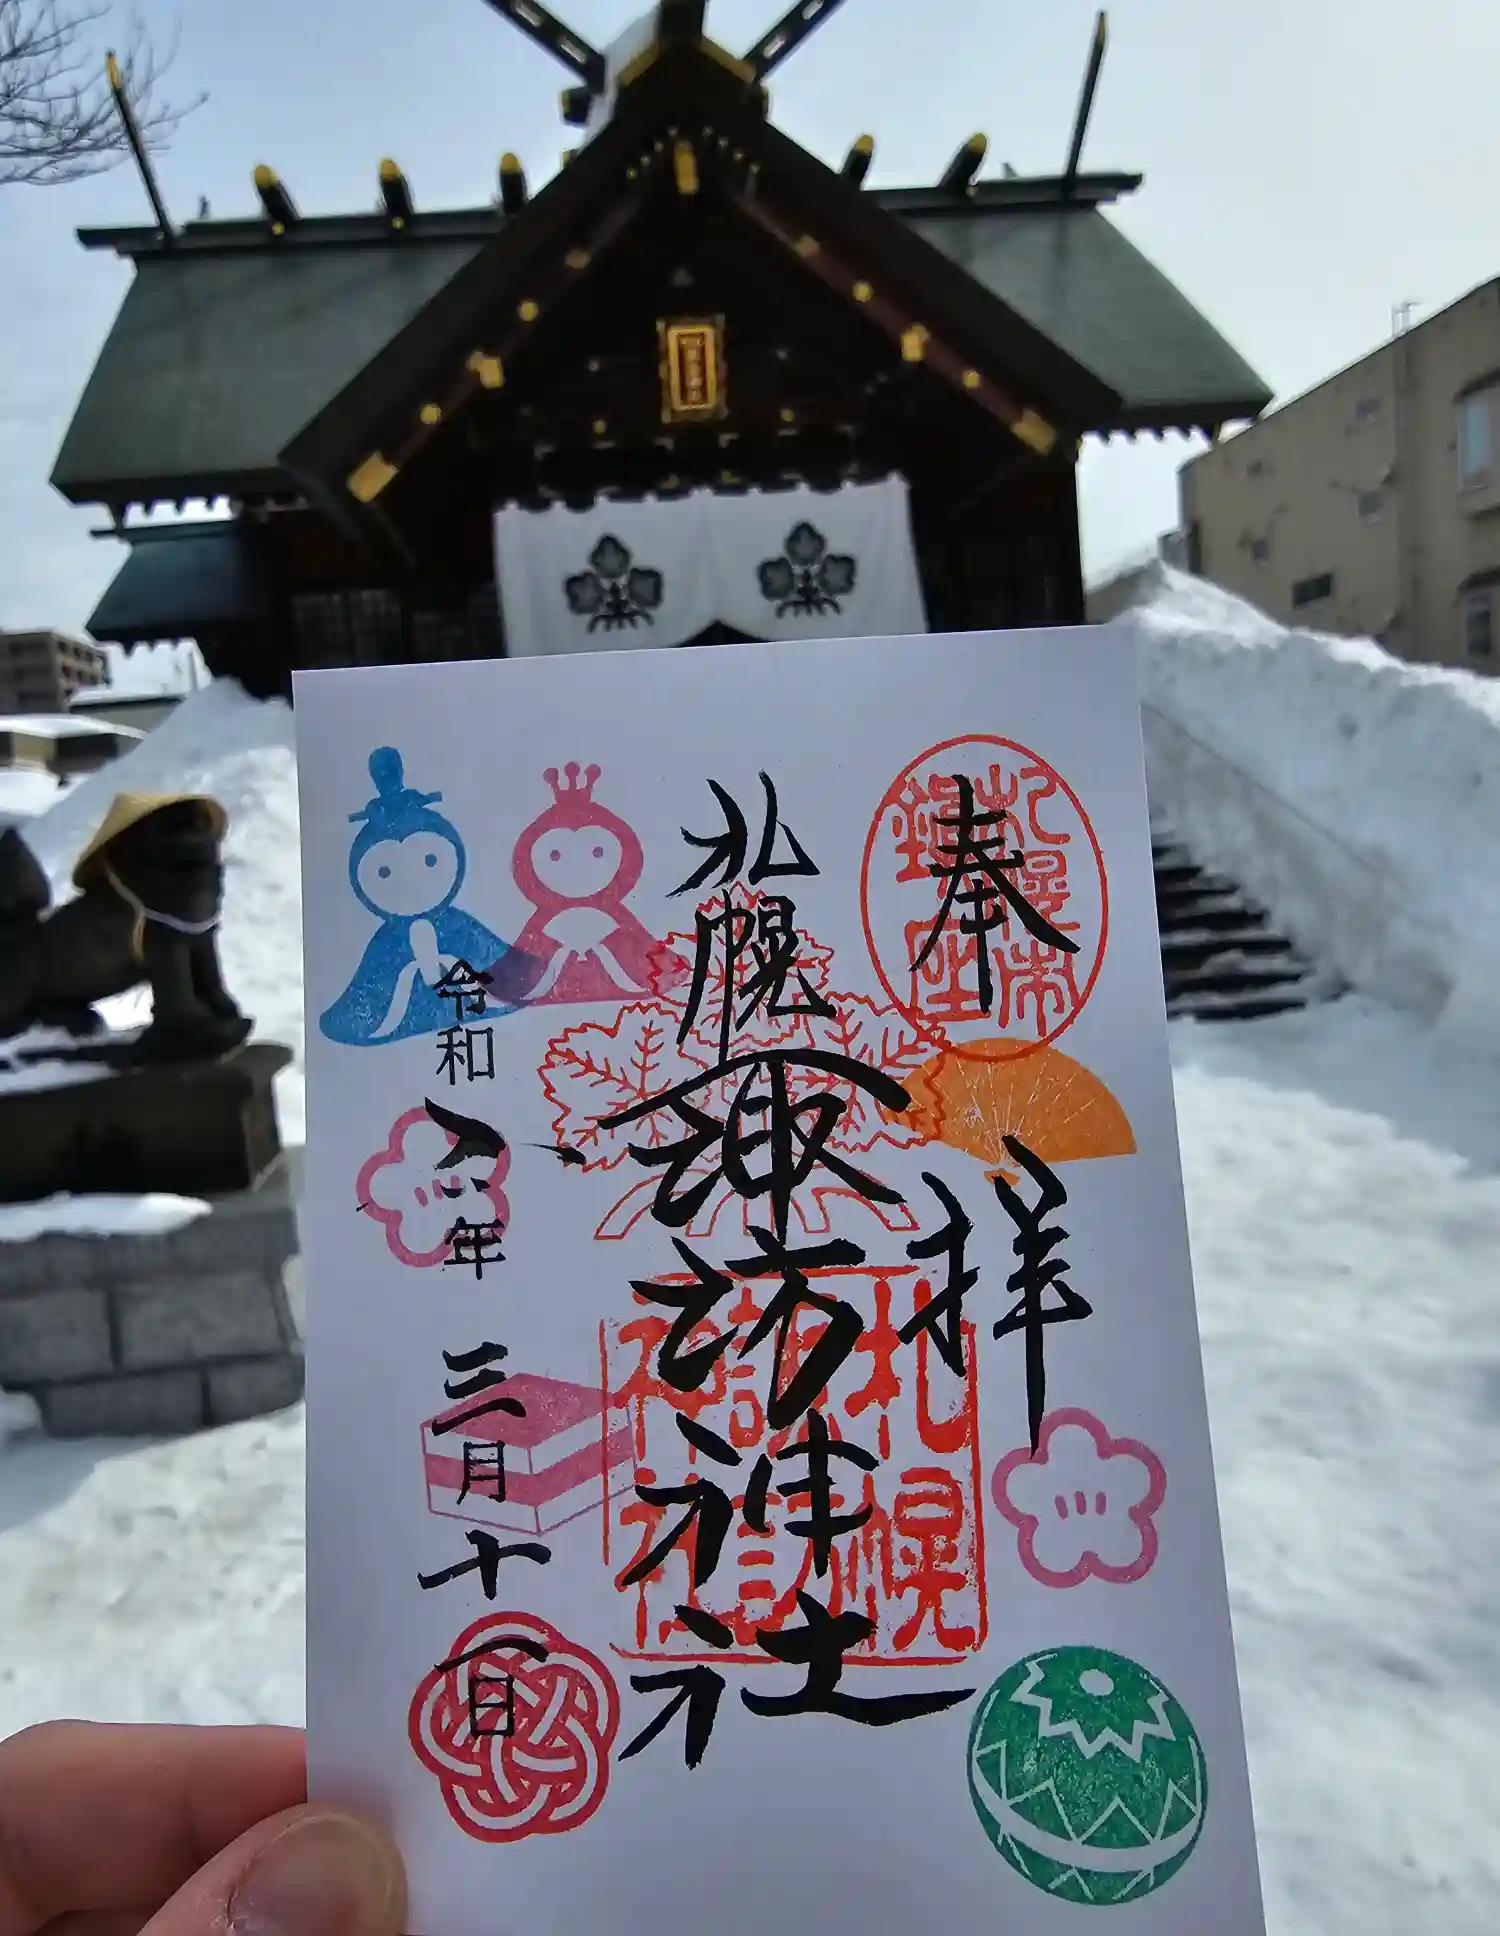 奉拝
札幌市
鎮座
札幌諏訪神社
札幌
諏訪
神社
令和年三月十一日